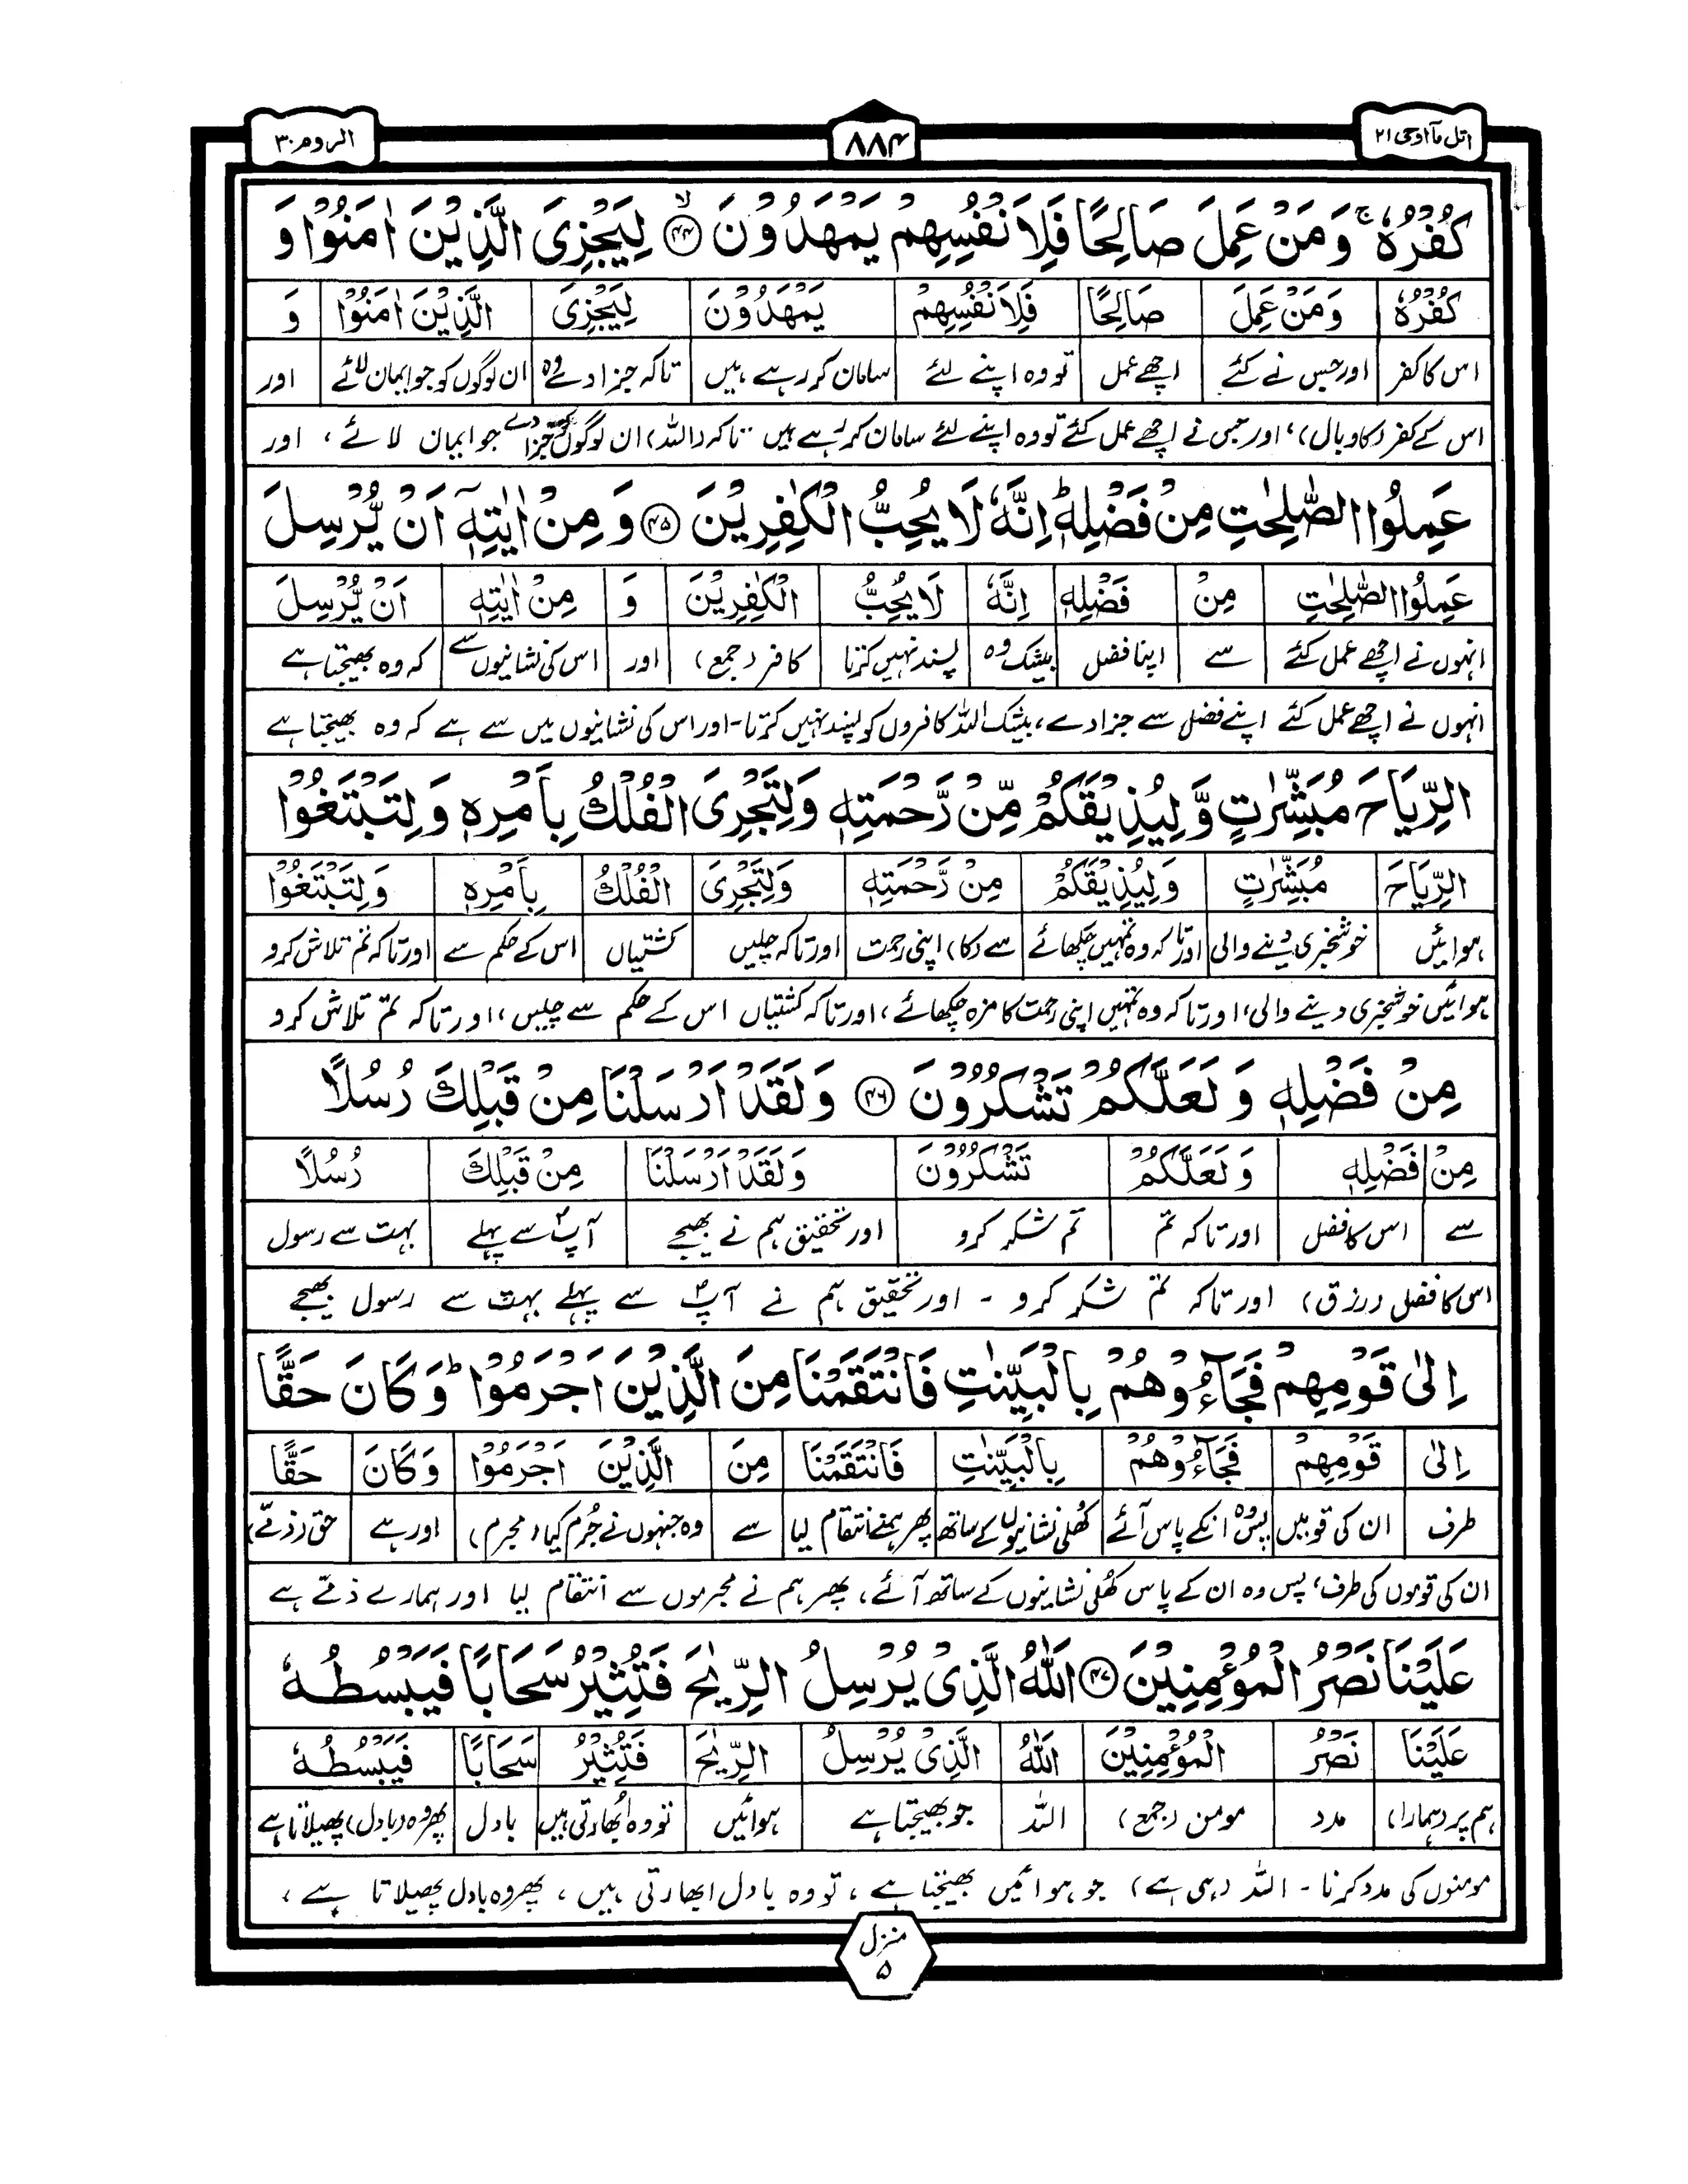 اتل مآ اوحی ۲۱
۸۸۴
الروم ۳۰
كُفْرُهٗ ۚ وَمَنْ عَمِلَ صَالِحًا فَلِاَنْفُسِهِمْ يَمْهَدُوْنَ ۙ﴿۴۴﴾ لِيَجْزِىَ الَّذِيْنَ اٰمَنُوْا وَ
كُفْرُهٗ وَمَنْ عَمِلَ صَالِحًا فَلِاَنْفُسِهِمْ يَمْهَدُوْنَ لِيَجْزِىَ الَّذِيْنَ اٰمَنُوْا وَ
اس کا کفر اور جس نے کئے اچھے عمل تو وہ اپنے لئے سامان کر رہے ہیں تاکہ جزا دے وہ ان لوگوں کو جو ایمان لائے اور
اس کے کفر (کا وبال)، اور جس نے اچھے عمل کئے تو وہ اپنے لئے سامان کر رہے ہیں تاکہ (اللہ) ان لوگوں کو جزا دے جو ایمان لائے، اور
عَمِلُوا الصّٰلِحٰتِ مِنْ فَضْلِهٖ ؕ اِنَّهٗ لَا يُحِبُّ الْكٰفِرِيْنَ ﴿۴۵﴾ وَ مِنْ اٰيٰتِهٖٓ اَنْ يُّرْسِلَ
عَمِلُوا الصّٰلِحٰتِ مِنْ فَضْلِهٖ اِنَّهٗ لَا يُحِبُّ الْكٰفِرِيْنَ وَ مِنْ اٰيٰتِهٖ اَنْ يُّرْسِلَ
انہوں نے اچھے عمل کئے سے اپنا فضل بیشک وہ پسند نہیں کرتا کافر (جمع) اور اس کی نشانیوں سے کہ وہ بھیجتا ہے
انہوں نے اچھے عمل کئے اپنے فضل سے جزا دے، بیشک اللہ کافروں کو پسند نہیں کرتا - اور اس کی نشانیوں میں سے ہے کہ وہ بھیجتا ہے
الرِّيَاحَ مُبَشِّرٰتٍ وَّ لِيُذِيْقَكُمْ مِّنْ رَّحْمَتِهٖ وَلِتَجْرِىَ الْفُلْكُ بِاَمْرِهٖ وَ لِتَبْتَغُوْا
الرِّيَاحَ مُبَشِّرٰتٍ وَ لِيُذِيْقَكُمْ مِنْ رَّحْمَتِهٖ وَلِتَجْرِىَ الْفُلْكُ بِاَمْرِهٖ وَ لِتَبْتَغُوْا
ہوائیں خوشخبری دینے والی اور تاکہ وہ تمہیں چکھائے سے (کا) اپنی رحمت اور تاکہ چلیں کشتیاں اس کے حکم سے اور تاکہ تم تلاش کرو
ہوائیں خوشخبری دینے والی، اور تاکہ وہ تمہیں اپنی رحمت کا مزہ چکھائے، اور تاکہ کشتیاں اس کے حکم سے چلیں، اور تاکہ تم تلاش کرو
مِنْ فَضْلِهٖ وَ لَعَلَّكُمْ تَشْكُرُوْنَ ﴿۴۶﴾ وَ لَقَدْ اَرْسَلْنَا مِنْ قَبْلِكَ رُسُلًا
مِنْ فَضْلِهٖ وَ لَعَلَّكُمْ تَشْكُرُوْنَ وَ لَقَدْ اَرْسَلْنَا مِنْ قَبْلِكَ رُسُلًا
سے اس کا فضل اور تاکہ تم تم شکر کرو اور تحقیق ہم نے بھیجے آپؐ سے پہلے بہت سے رسول
اس کا فضل (رزق) اور تاکہ تم شکر کرو - اور تحقیق ہم نے آپؐ سے پہلے بہت سے رسول بھیجے
اِلٰى قَوْمِهِمْ فَجَآءُوْهُمْ بِالْبَيِّنٰتِ فَانْتَقَمْنَا مِنَ الَّذِيْنَ اَجْرَمُوْا ؕ وَ كَانَ حَقًّا
اِلٰى قَوْمِهِمْ فَجَآءُوْهُمْ بِالْبَيِّنٰتِ فَانْتَقَمْنَا مِنَ الَّذِيْنَ اَجْرَمُوْا وَ كَانَ حَقًّا
طرف ان کی قومیں پس وہ انکے پاس آئے کھلی نشانیوں کے ساتھ پھر ہمنے انتقام لیا سے وہ جنہوں نے جرم کیا (مجرم) اور ہے حق (ذمے)
ان کی قوموں کی طرف، پس وہ ان کے پاس کھلی نشانیوں کے ساتھ آئے، پھر ہم نے مجرموں سے انتقام لیا اور ہمارے ذمے ہے
عَلَيْنَا نَصْرُ الْمُؤْمِنِيْنَ ﴿۴۷﴾ اَللّٰهُ الَّذِىْ يُرْسِلُ الرِّيٰحَ فَتُثِيْرُ سَحَابًا فَيَبْسُطُهٗ
عَلَيْنَا نَصْرُ الْمُؤْمِنِيْنَ اَللّٰهُ الَّذِىْ يُرْسِلُ الرِّيٰحَ فَتُثِيْرُ سَحَابًا فَيَبْسُطُهٗ
ہم پر (ہمارا) مدد مومن (جمع) اللہ جو بھیجتا ہے ہوائیں تو وہ ابھارتی ہیں بادل پھر وہ (بادل) پھیلاتا ہے
مومنوں کی مدد کرنا - اللہ (وہی ہے) جو ہوائیں بھیجتا ہے، تو وہ بادل ابھارتی ہیں، پھر وہ بادل پھیلاتا ہے،
منزل
۵